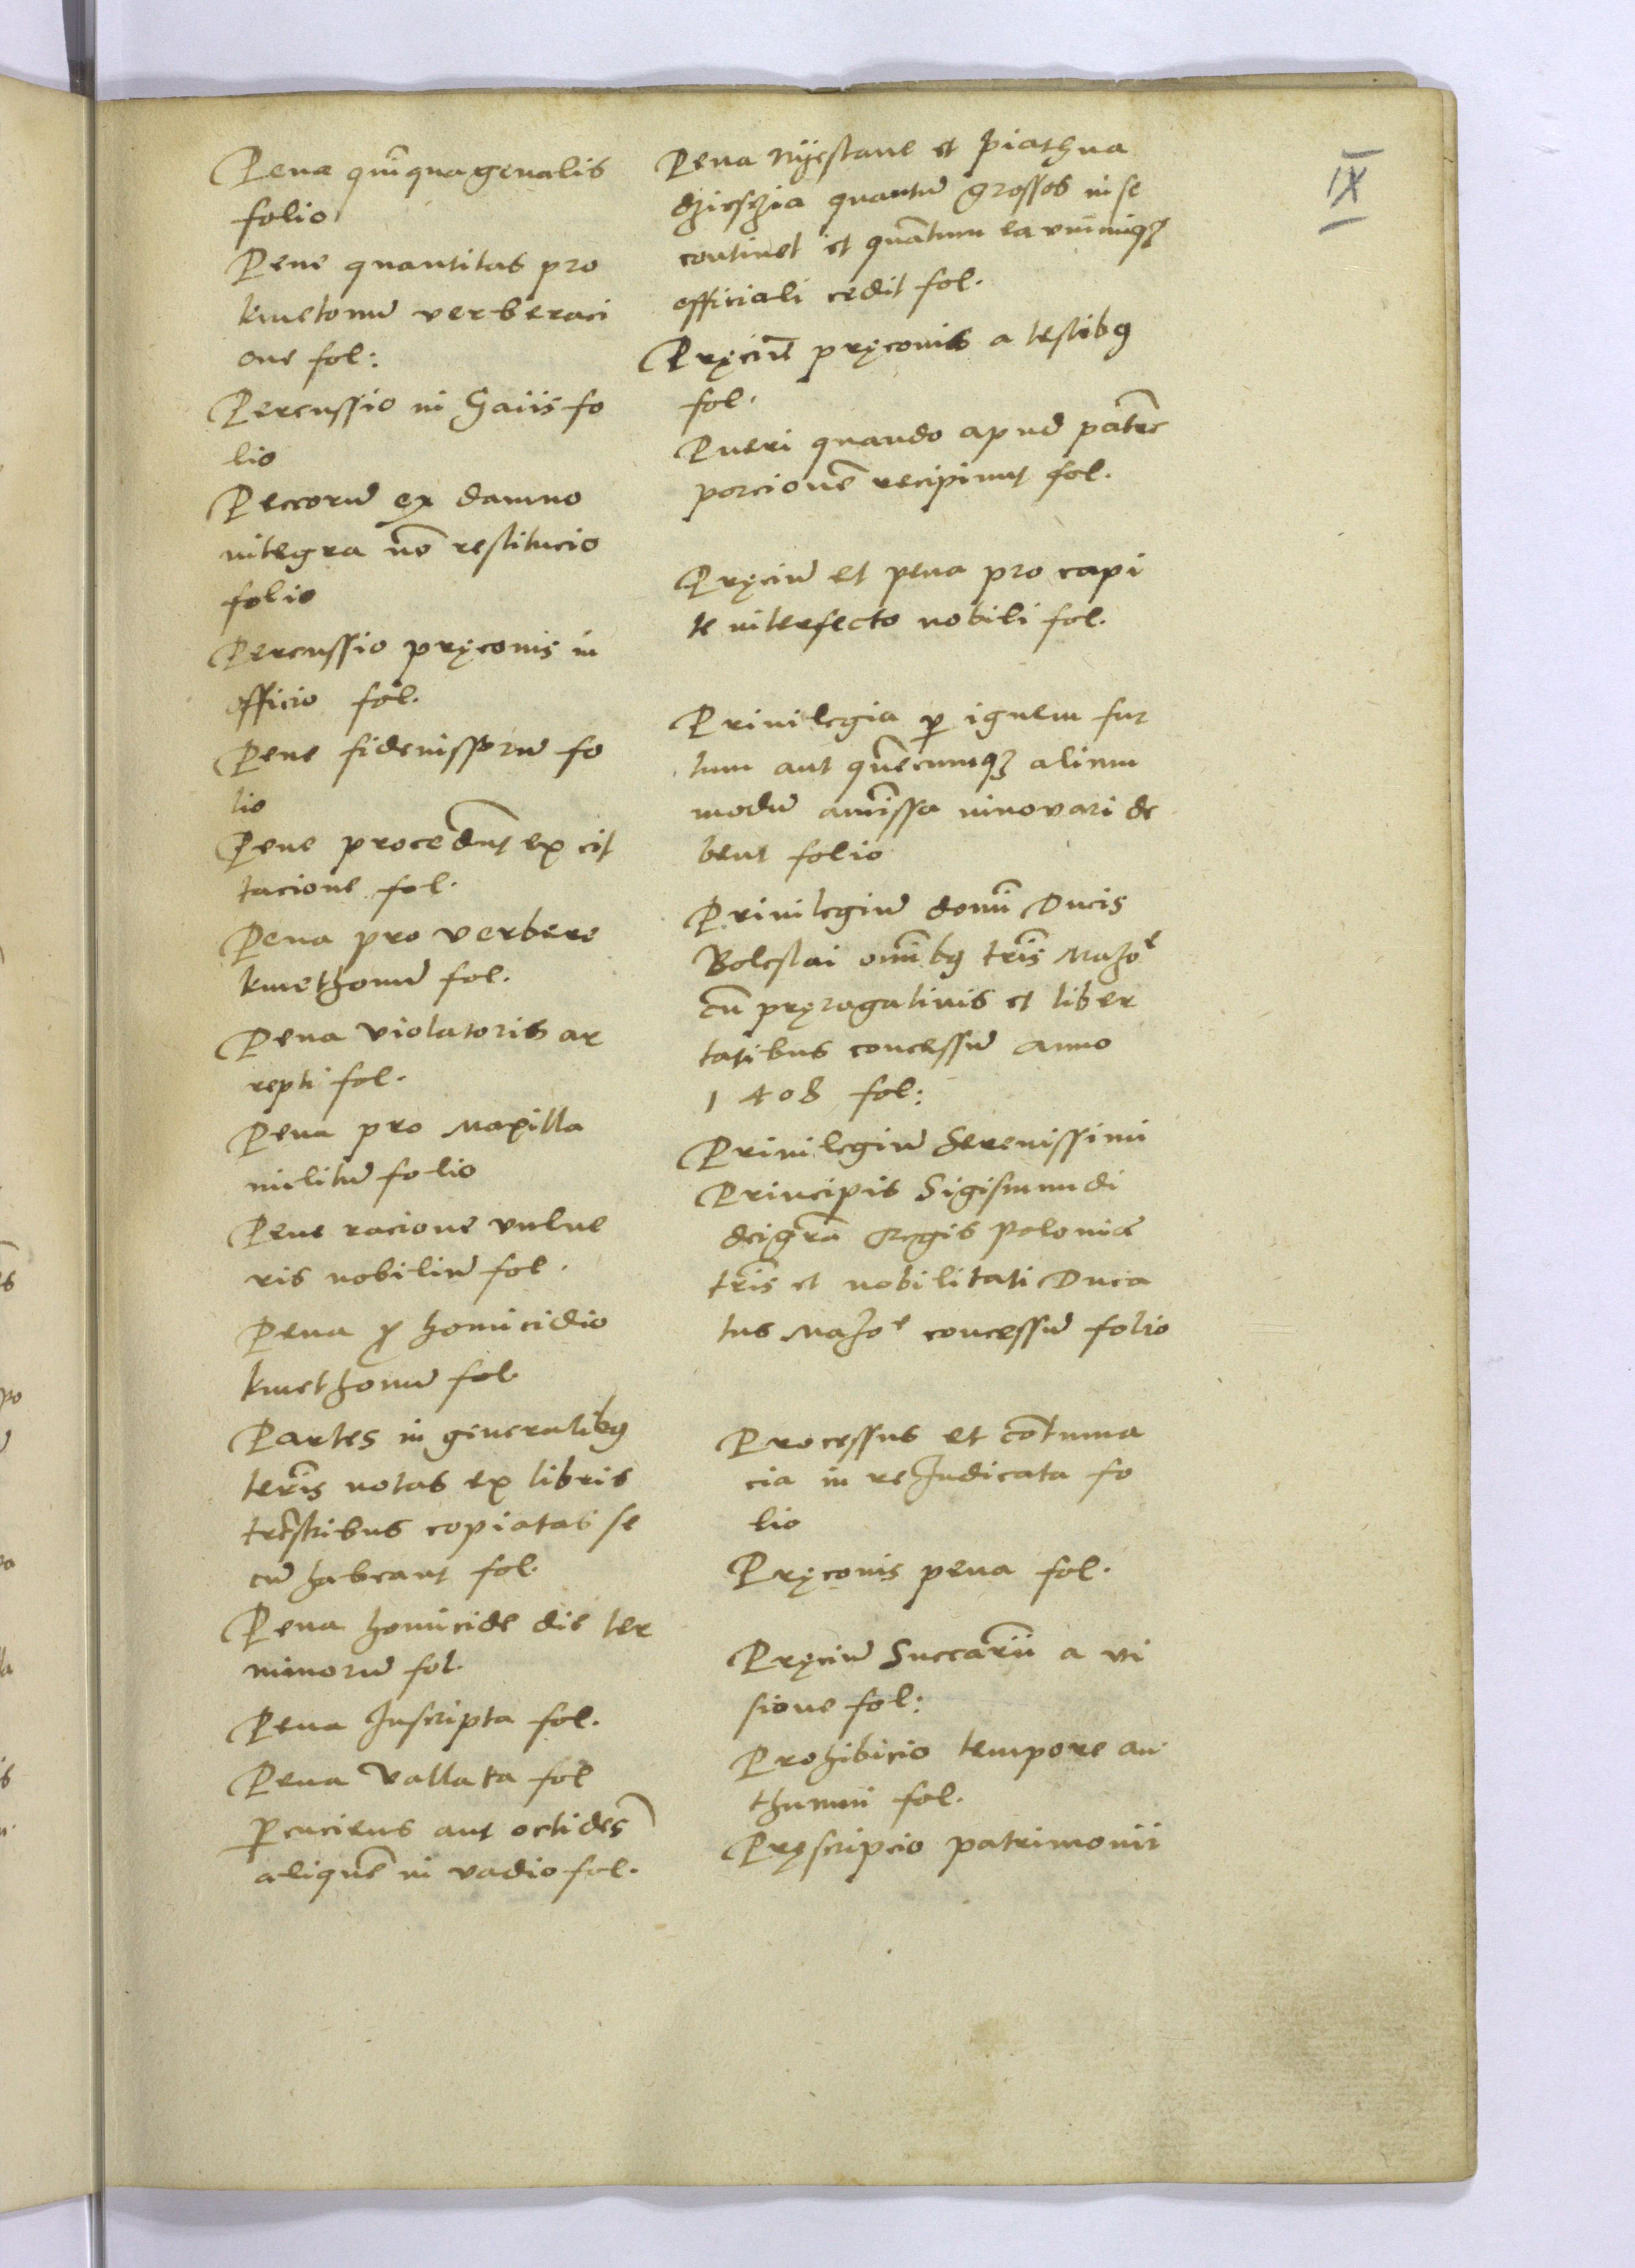 IX
Pena qui͂quagenalis
folio
Pene quantitas pro
kmetonu͂ verberaci
one fol:
Percussio in Gaiis fo
lio
Peccoru͂ ex damno
integra no͂ restitucio
folio
Percussio pręconis in
officio fol.
Pene fideiussoru͂ fo
lio
Pene procedu͂t ex cit
tacione fol.
Pena pro verbere
kmethonu͂ fol.
Pena violatoris ar
repti fol.
Pena pro Maxilla
militu͂ folio
Pene racione vulne
ris nobiliu͂ fol.
Pena ꝓ homicidio
kmethonu͂ fol.
Partes in generalibꝯ
teri͂s notas ex libris
tre͂stribus copiatas se
cu͂ habeant fol.
Pena homicide die ter
minoru͂ fol.
Pena Inscripta fol.
Pena Vallata fol
ꝑcuciens aut occides͂
alique͂ in vadio fol.
Pena nyestane et piathna
dziesczia quantu͂ grossos in se
continet et qua͂tum ea vnicuiqꝫ
officiali cedit fol.
Pręciu͂ pręconis a testibꝯ
fol.
Pueri quando apud pat͂re
porcione͂ recipiunt fol.
Pręciu͂ et pena pro capi
te interfecto nobili fol.
Privilegia ꝑ ignem fur
tum aut que͂cumqꝫ alium
modu͂ amissa innovari de
bent folio
Privilegiu͂ domi͂ Ducis
Boleslai omi͂bꝯ tri͂s Mazoͤ
cu͂ pręrogativis et liber
tatibus concessu͂ anno
1408 fol:
Privilegiu͂ Serenissimi
Principis Sigismundi
dei gra͂ Regis Poloniæ
tri͂s et nobilitati Duca
tus Mazoͤ concessu͂ folio
Processus et co͂tuma
cia in re Judicata fo
lio
Pręconis pena fol.
Pręciu͂ Succa͂rii a vi
sione fol:
Prohibicio tempore au
thumni fol.
Pręscripcio patrimonii